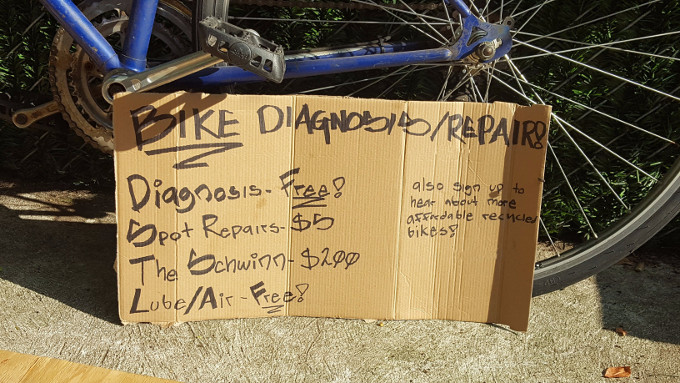 BIKE DIAGNOSIS/REPAIR!
Diagnosis - Free!
Spot Repairs - $5
The Schwinn - $200
Lube/Air - Free!
also sign up to
hear about more
affordable recycled
bikes!